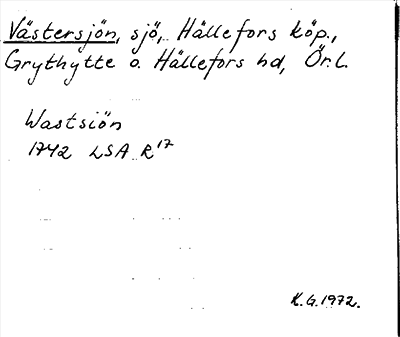 Västersjön, sjö, Hällefors köp.,
Grythytte o. Hällefors hd, Ör.l.
Wastsiön
1742 LSA R17
K.G.1972.